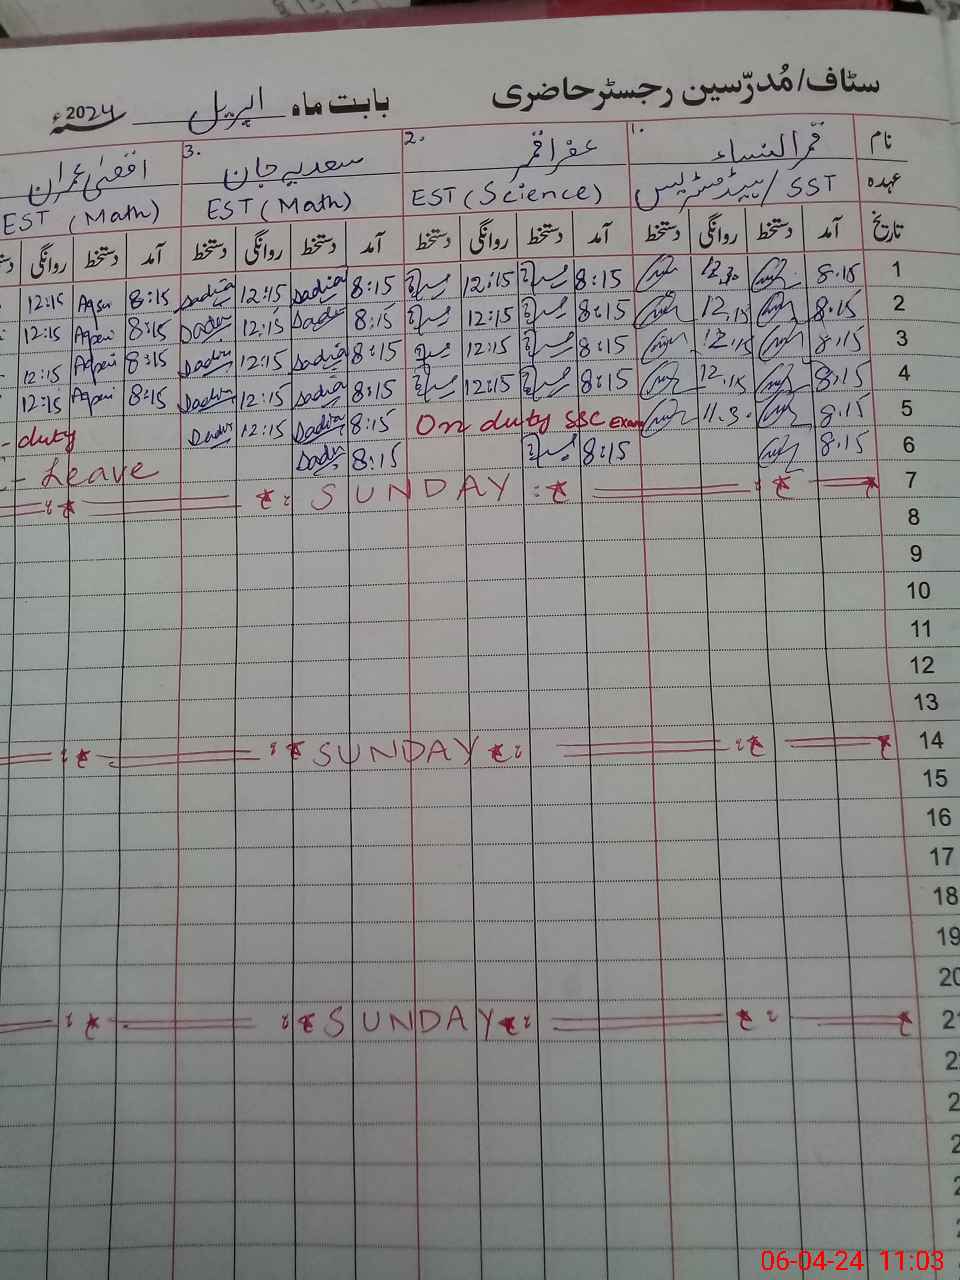 سٹاف/مُدرّسین رجسٹر حاضری بابت ماہ اپریل سنہ 2024ء
نام 1. قمر النساء 2. عفرا قمر 3. سعدیہ جان اقصیٰ عمران
عہدہ SST/ہیڈمسٹریس EST (Science) EST (Math) EST (Math)
تاریخ آمد دستخط روانگی دستخط آمد دستخط روانگی دستخط آمد دستخط روانگی دستخط آمد دستخط روانگی
1 8.15 8:15 12:15 8:15 Sadia 12:15 Sadia 8:15 Aqsa 12:15
2 8.15 12.15 8:15 12:15 8:15 Sadia 12:15 Sadia 8:15 12:15
3 8.15 12.15 8:15 12:15 8:15 Sadia 12:15 Sadia 8:15 12:15
4 8.15 12.15 8:15 12:15 8:15 Sadia 12:15 Sadia 8:15 12:15
5 8.15 11.3. On duty SSC Exam 8:15 Sadia 12:15 Sadia -duty
6 8.15 8:15 8:15 Sadia - Leave
7 SUNDAY
8
9
10
11
12
13
14 SUNDAY
15
16
17
18
19
20
SUNDAY
06-04-24 11:03